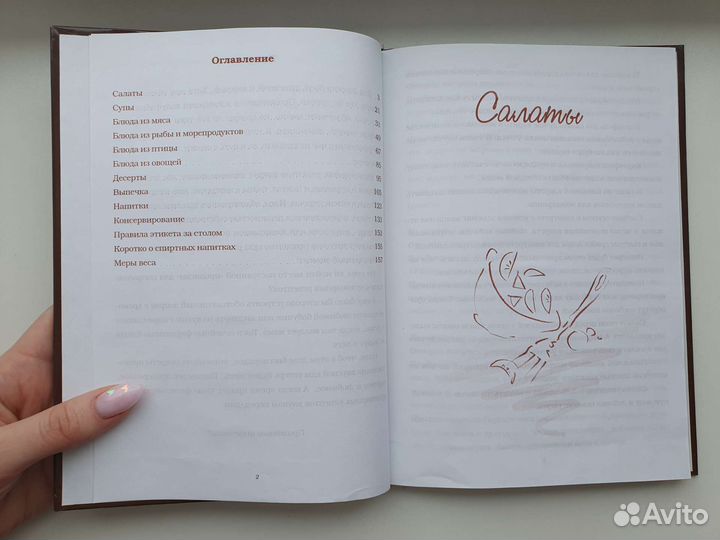 Оглавление
Салаты 3
Супы 21
Блюда из мяса 31
Блюда из рыбы и морепродуктов 49
Блюда из птицы 67
Блюда из овощей 85
Десерты 95
Выпечка 105
Напитки 123
Консервирование 131
Правила этикета за столом 151
Коротко о спиртных напитках 155
Меры веса 157
2
Салаты
Avito